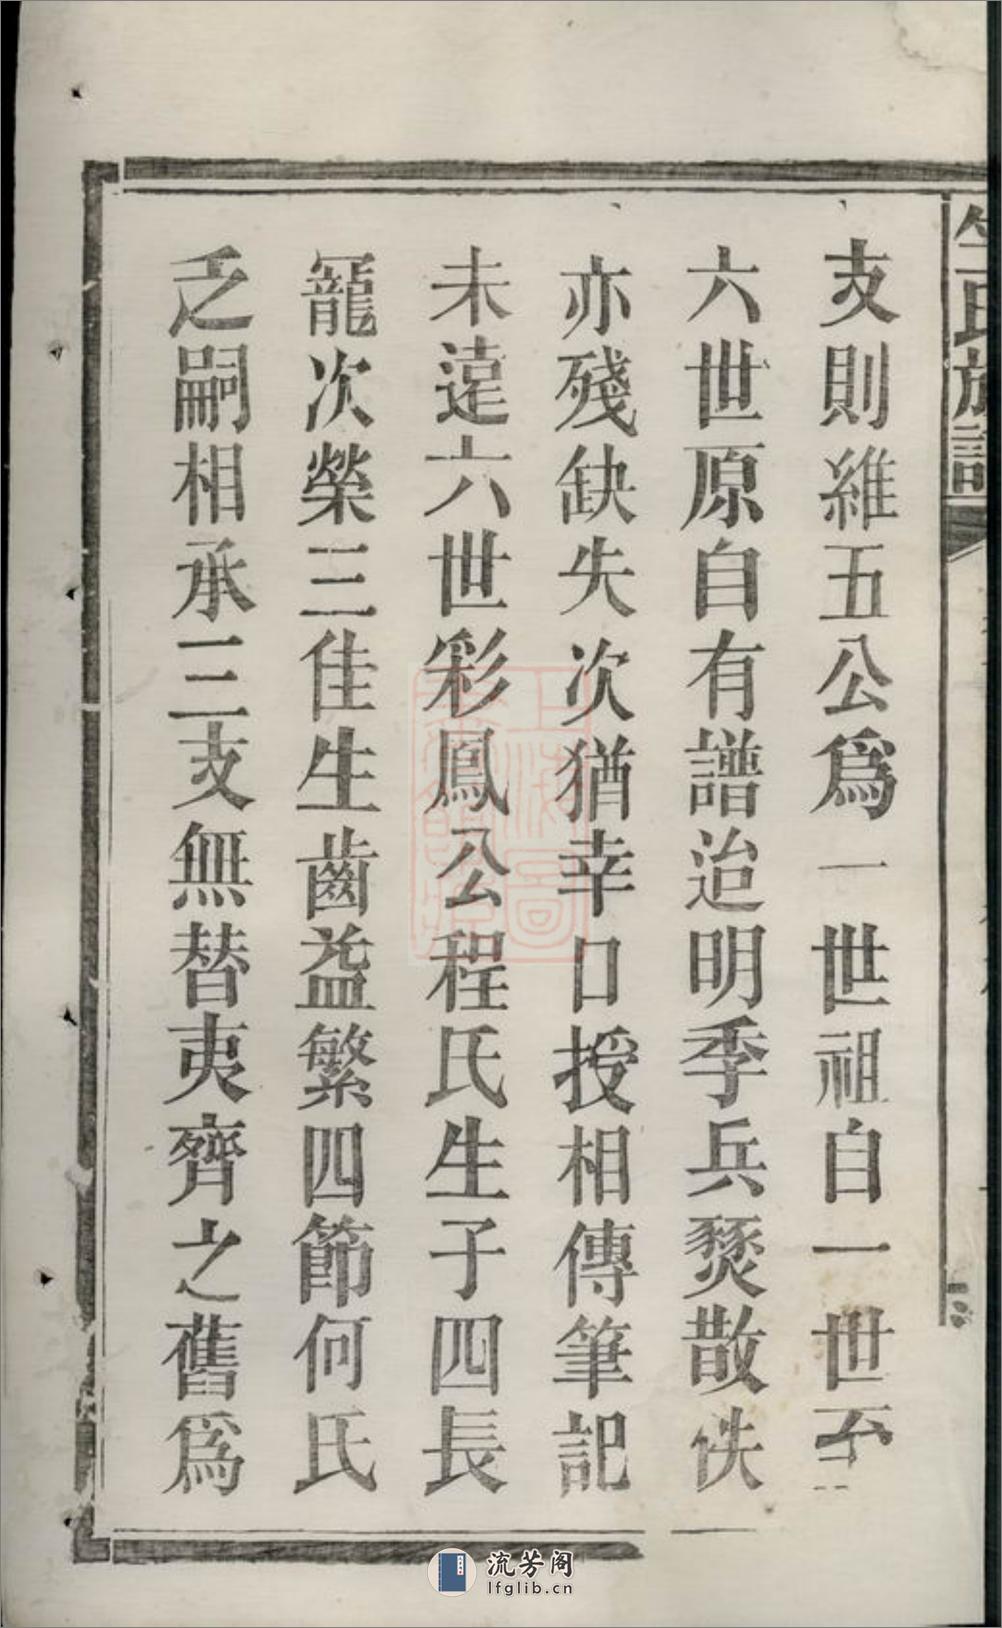 氏族譜
支則維五公爲一世祖自一世至
六世原自有譜迨明季兵燹散佚
亦殘缺失次猶幸口授相傳筆記
未遠六世彩鳳公程氏生子四長
寵次榮三佳生齒益繁四節何氏
乏嗣相承三支無替夷齊之舊爲
流芳阁
lfglib.cn